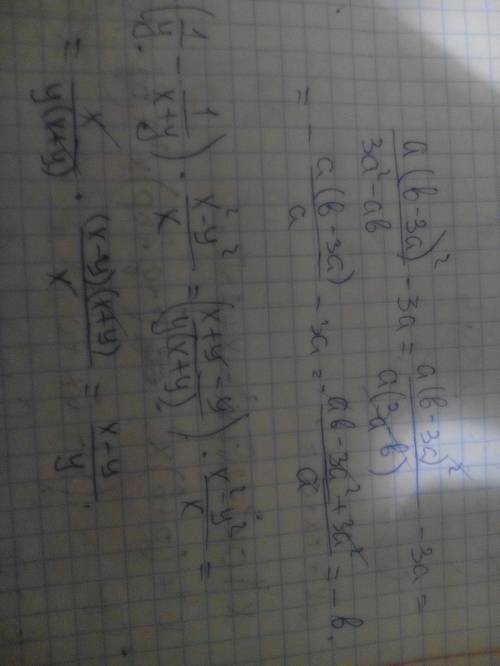 a(b-3a)²/(3a²-ab) - 3a = a(b-3a)²/(a(3a-b)) - 3a =
= - a(b-3a)/a - 3a = - (ab-3a²+3a²)/a = -b.
(1/y - 1/(x+y)) · (x²-y²)/x = ((x+y-y)/(y(x+y))) · (x²-y²)/x =
= x/(y(x+y)) · (x-y)(x+y)/x = (x-y)/y.